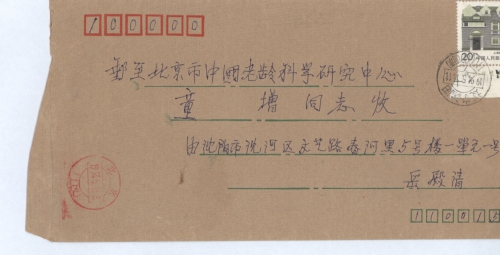 100000
20
寄至北京市中国老龄科学研究中心
童 增 同志收
由沈阳市沈河区文艺路春河里5号楼一单元一号
岳殿清
11001